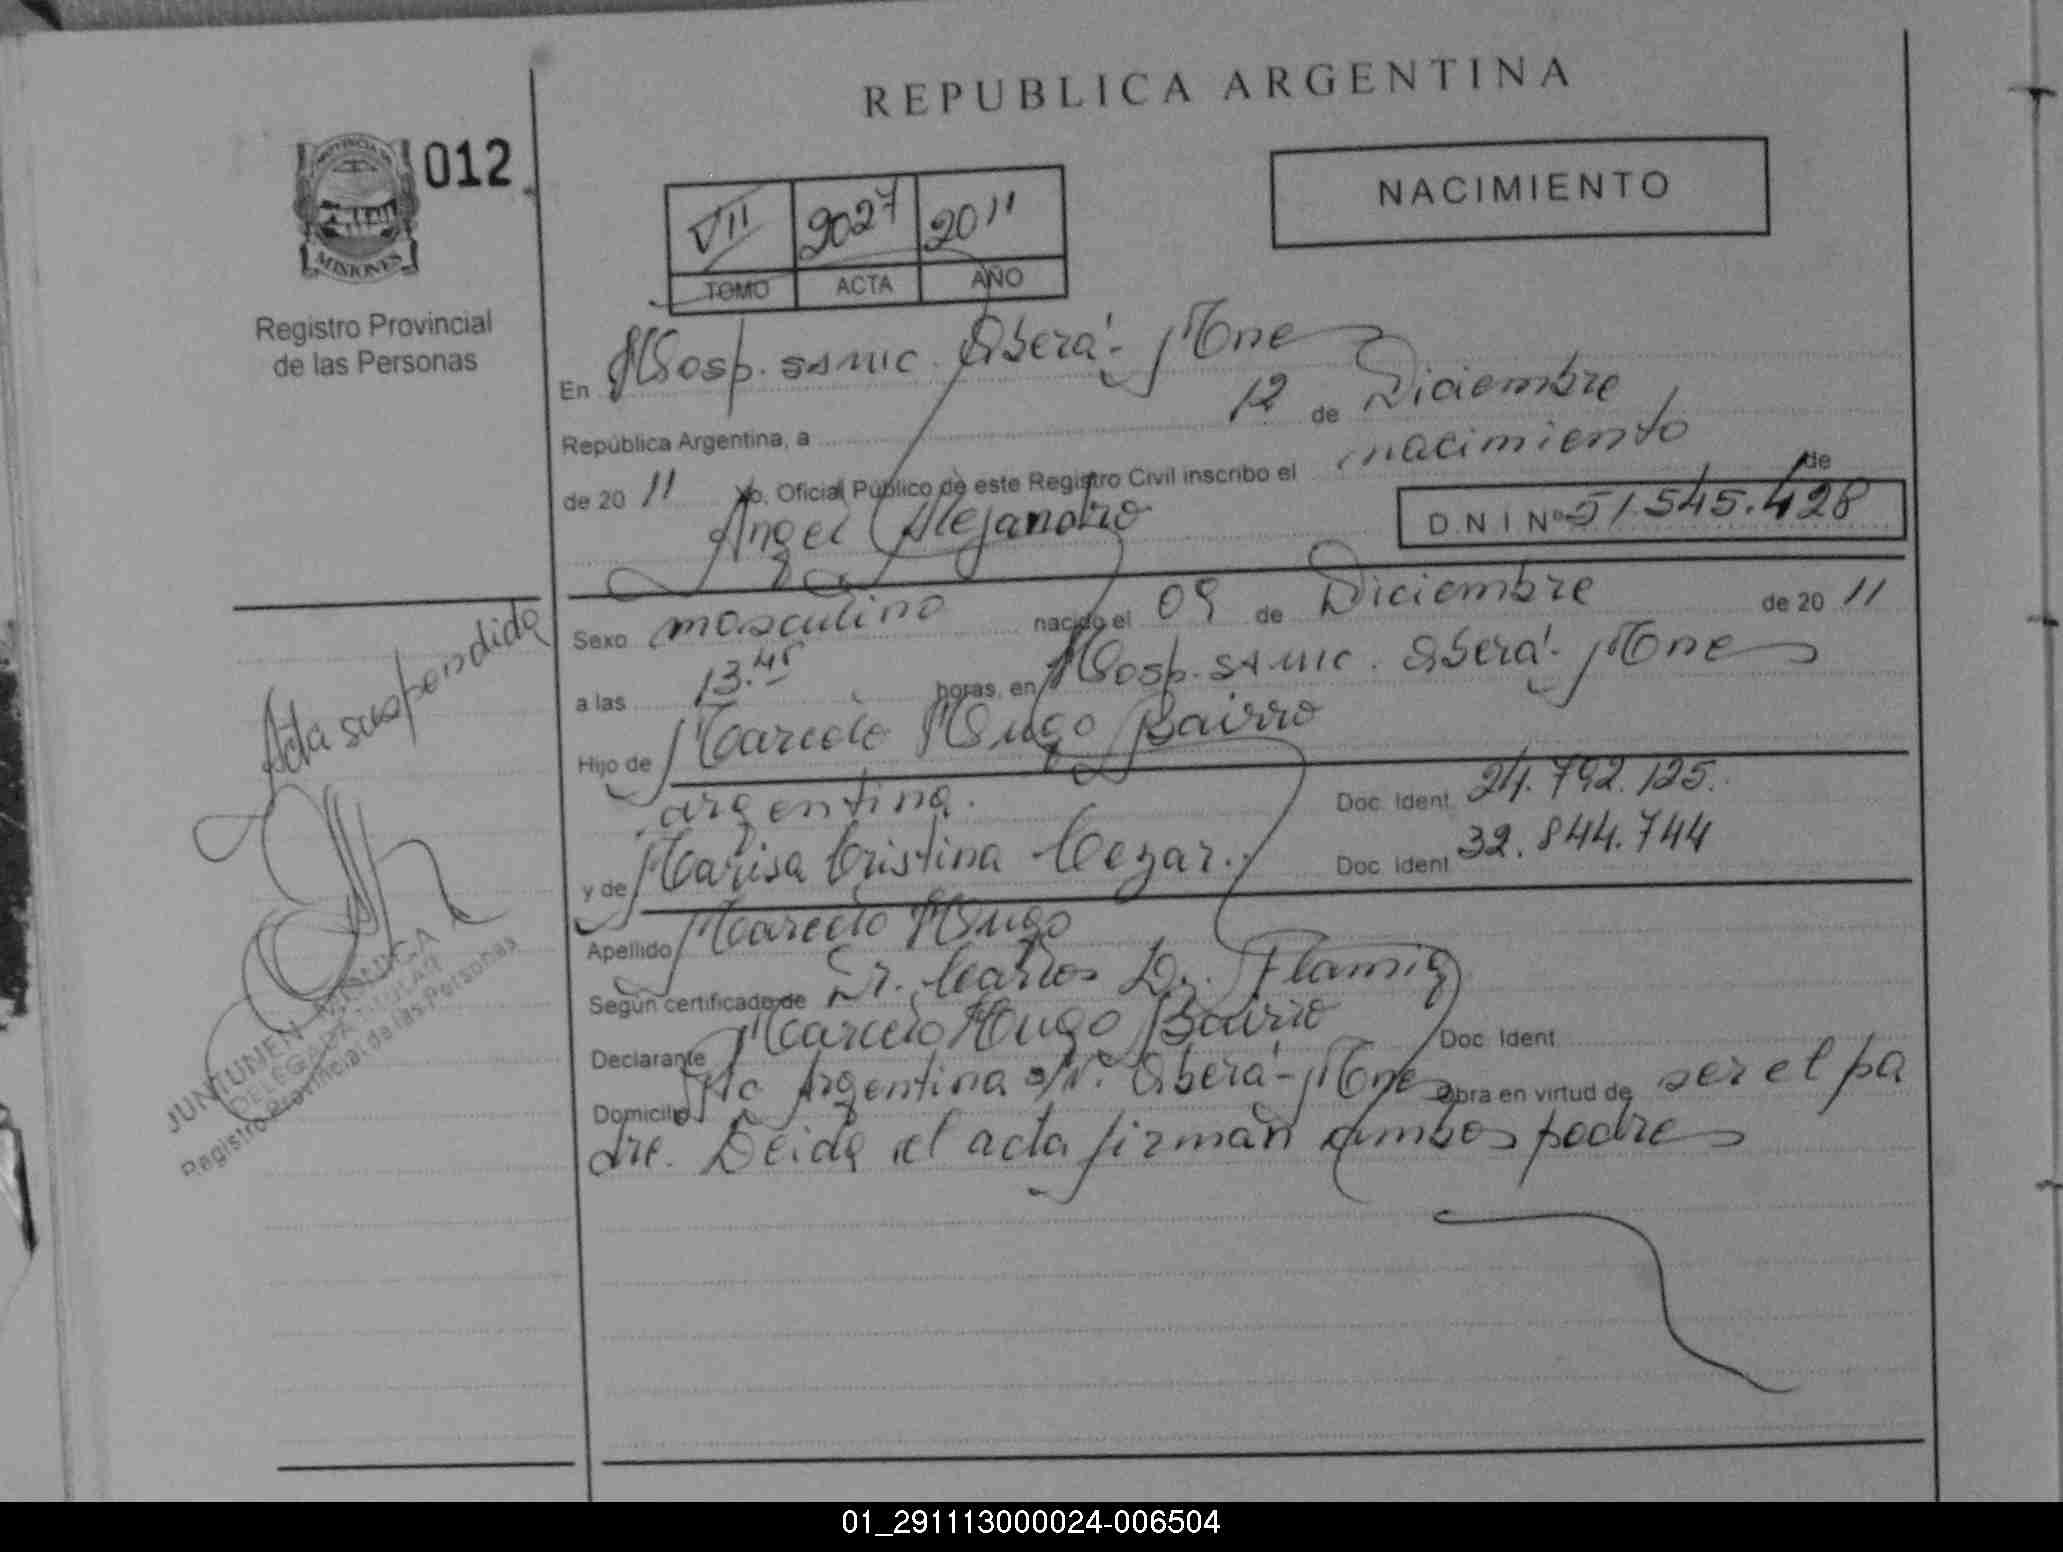 REPUBLICA ARGENTINA
PROVINCIA DE
MISIONES
012
Registro Provincial
de las Personas
NACIMIENTO
VII 2027 2011
TOMO ACTA AÑO
En Hosp. SAMIC. Oberá - Mnes
República Argentina, a 12 de Diciembre
de 20 11 Yo, Oficial Público de este Registro Civil inscribo el nacimiento de
Angel Alejandro
D N I Nº 51.545.428
Sexo masculino nacido el 09 de Diciembre de 20 11
a las 13.45 horas, en Hosp. SAMIC. Oberá - Mnes
Hijo de Marcelo Hugo Bairro
argentina. Doc. Ident. 24.792.125.
y de Marisa Cristina Cezar. Doc. Ident. 32.844.744
Apellido Marcelo Hugo
Según certificado de Dr. Carlos D. Flamig
Declarante Marcelo Hugo Bairro Doc. Ident.
Domicilio Argentina s/n. Oberá - Mnes Obra en virtud de ser el pa
dre. Leida el acta firman ambos padres
Acta suspendida
JUNTUNEN MONICA
DELEGADA TITULAR
Registro Provincial de las Personas
01_291113000024-006504